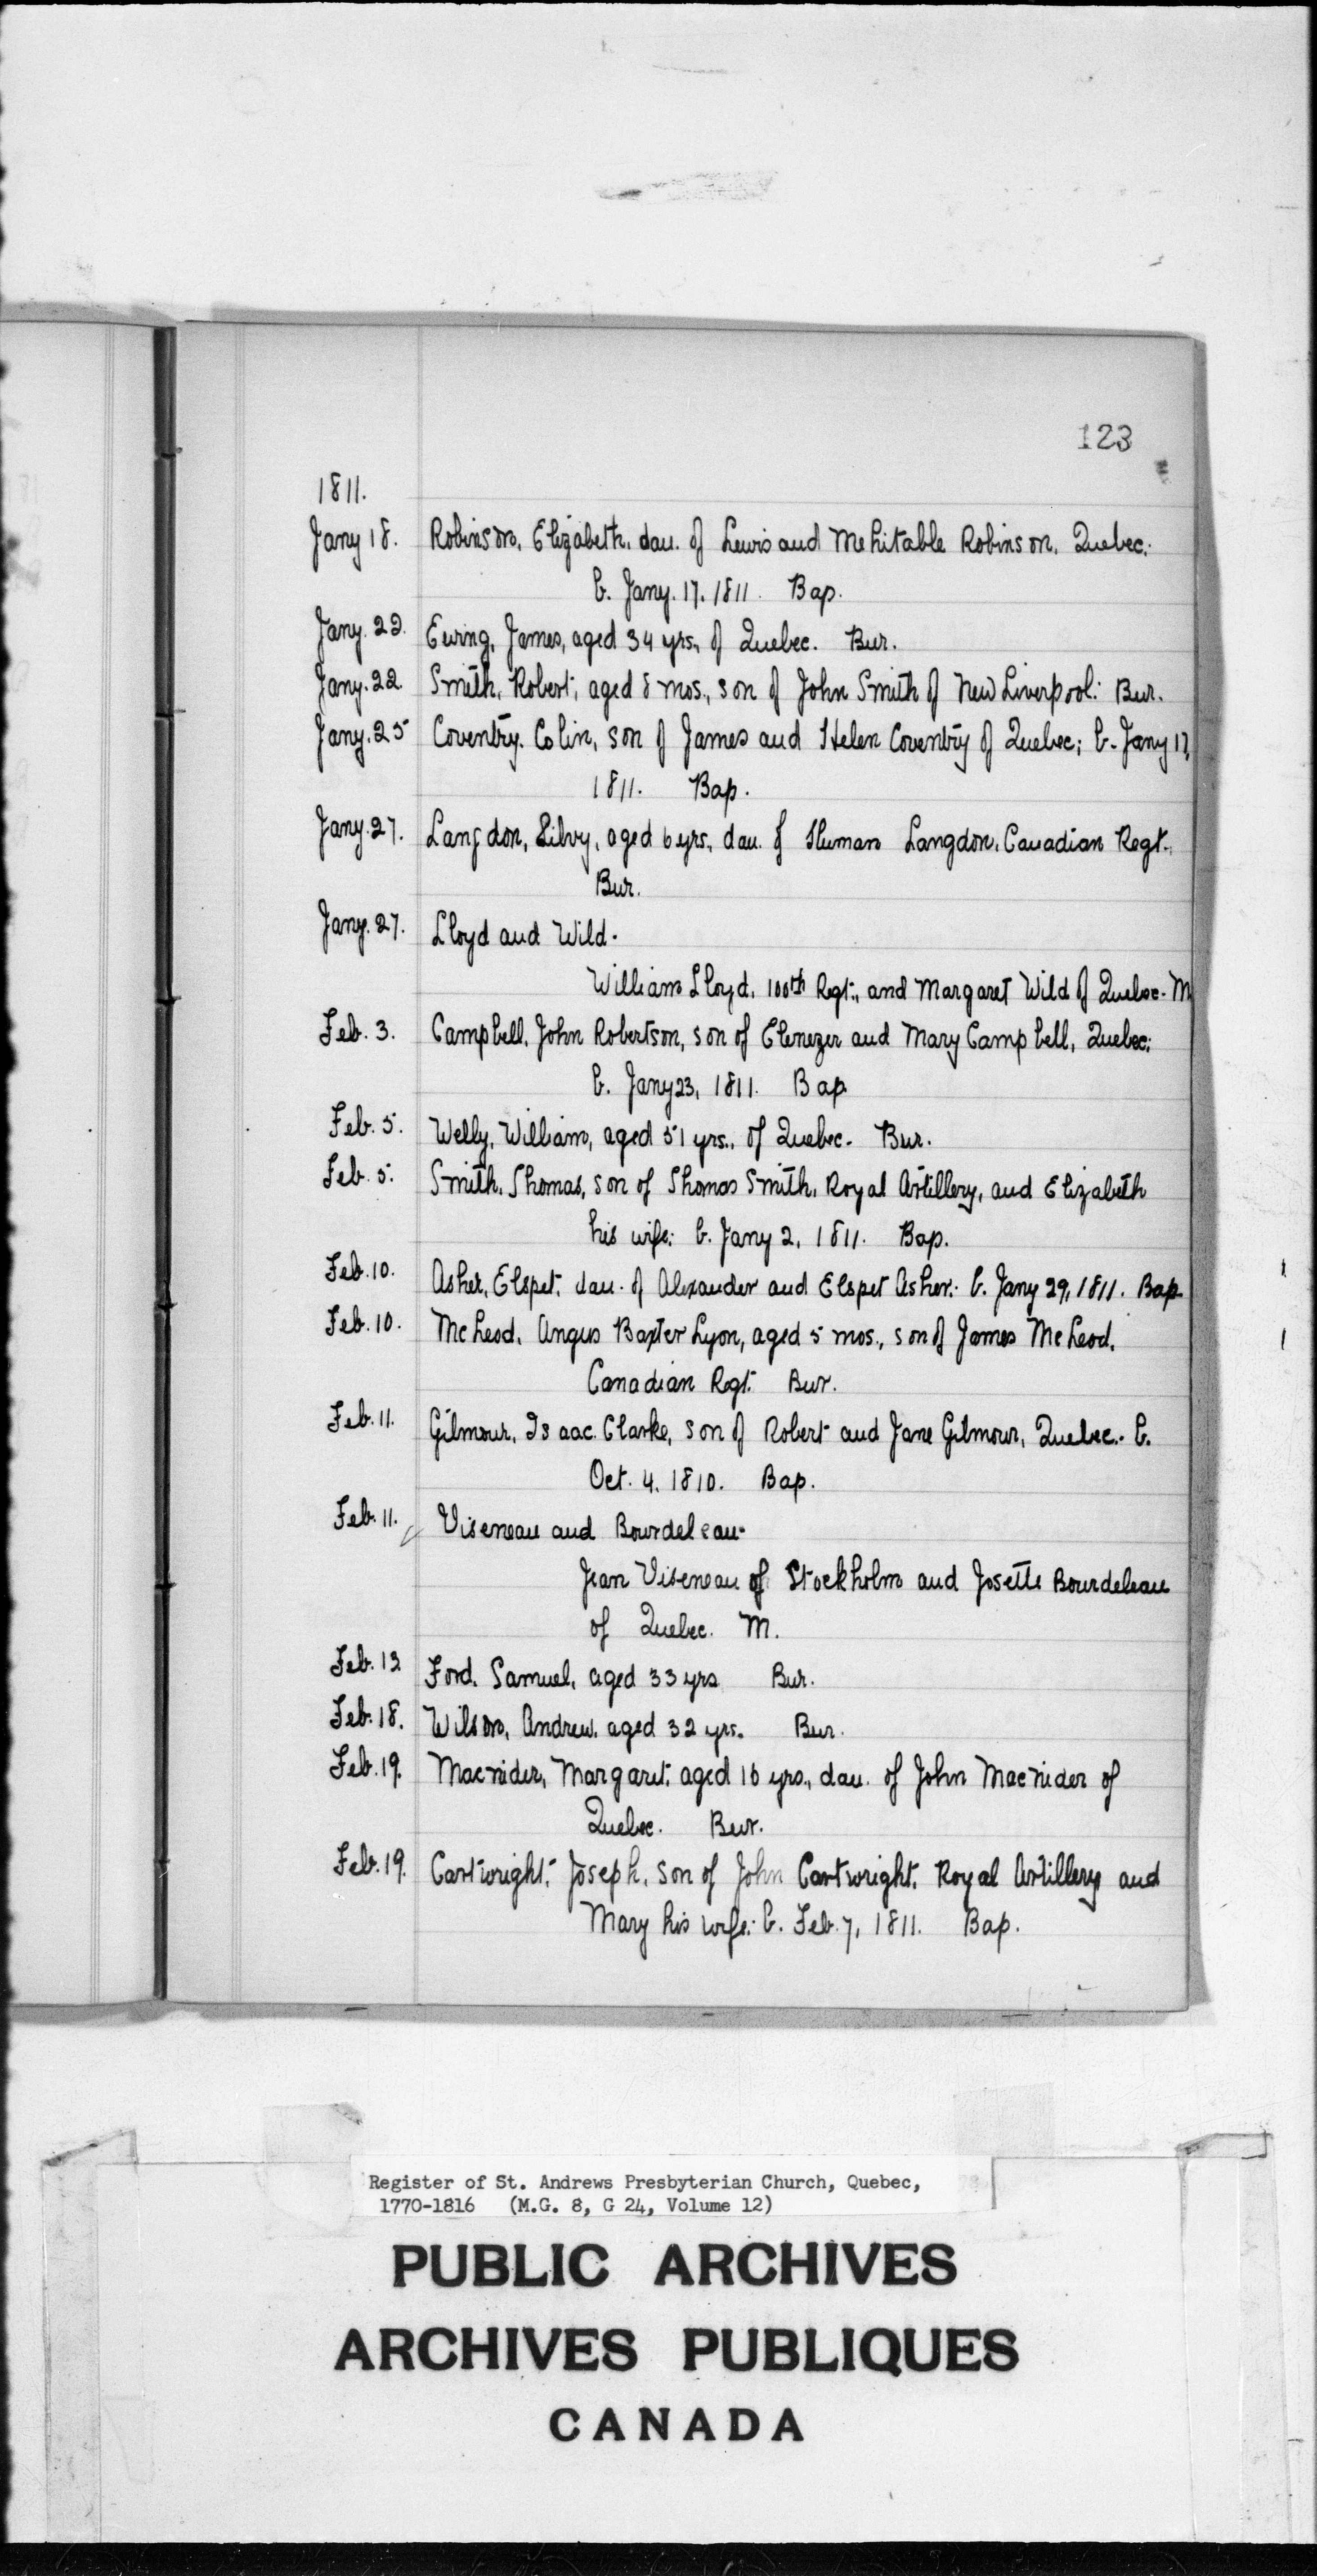 123
1811.
Jany 18. Robinson, Elizabeth, dau. of Lewis and Mehitable Robinson, Quebec;
b. Jany. 17. 1811. Bap.
Jany. 22. Ewing, James, aged 34 yrs., of Quebec. Bur.
Jany. 22. Smith, Robert, aged 8 mos., son of John Smith of New Liverpool. Bur.
Jany. 25 Coventry, Colin, son of James and Helen Coventry of Quebec; b. Jany 17,
1811. Bap.
Jany. 27. Langdon, Silvy, aged 6 yrs., dau. of Human Langdon, Canadian Regt.
Bur.
Jany. 27. Lloyd and Wild.
William Lloyd, 100th Regt., and Margaret Wild of Quebec. M
Feb. 3. Campbell, John Robertson, son of Ebenezer and Mary Campbell, Quebec;
b. Jany 23, 1811. Bap.
Feb. 5. Welly, William, aged 51 yrs., of Quebec. Bur.
Feb. 5. Smith, Thomas, son of Thomas Smith, Royal Artillery, and Elizabeth
his wife; b. Jany 2, 1811. Bap.
Feb. 10. Asher, Elspet, dau. of Alexander and Elspet Asher; b. Jany 29, 1811. Bap.
Feb. 10. McLeod, Angus Baxter Lyon, aged 5 mos., son of James McLeod,
Canadian Regt. Bur.
Feb. 11. Gilmour, Isaac Clarke, son of Robert and Jane Gilmour, Quebec. b.
Oct. 4. 1810. Bap.
Feb. 11. Viseneau and Bourdeleau.
Jean Viseneau of Stockholm and Josette Bourdeleau
of Quebec. M.
Feb. 13 Ford, Samuel, aged 33 yrs. Bur.
Feb. 18. Wilson, Andrew, aged 32 yrs. Bur.
Feb. 19. Macnider, Margaret, aged 16 yrs., dau. of John Macnider of
Quebec. Bur.
Feb. 19. Cartwright, Joseph, son of John Cartwright, Royal Artillery and
Mary his wife; b. Feb. 7, 1811. Bap.
Register of St. Andrews Presbyterian Church, Quebec,
1770-1816 (M.G. 8, G 24, Volume 12)
PUBLIC ARCHIVES
ARCHIVES PUBLIQUES
CANADA